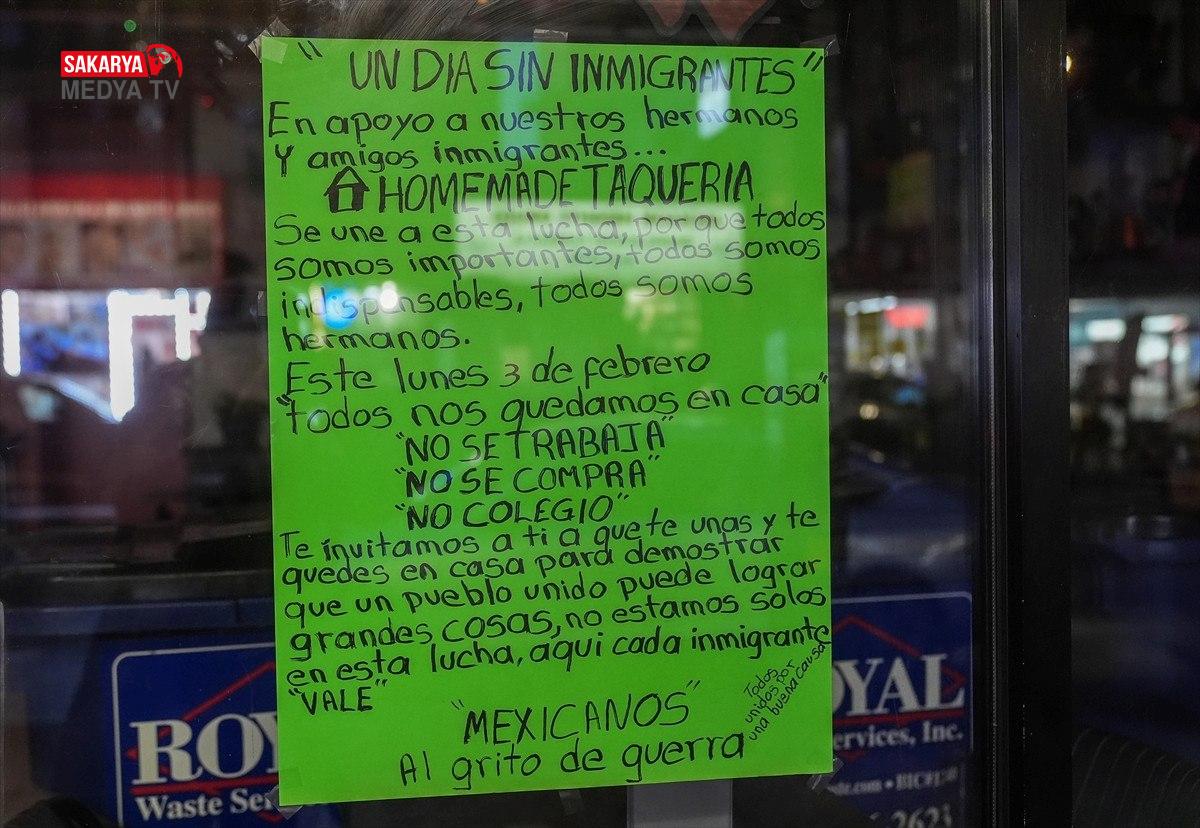 SAKARYA
MEDYA TV
" UN DIA SIN INMIGRANTES"
En apoyo a nuestros hermanos
Y amigos inmigrantes...
HOMEMADE TAQUERIA
Se une a esta lucha, por que todos
somos importantes, todos somos
indispensables, todos somos
hermanos.
Este lunes 3 de febrero
"todos nos quedamos en casa"
"NO SE TRABAJA"
"NO SE COMPRA"
"NO COLEGIO"
Te invitamos a ti a que te unas y te
quedes en casa para demostrar
que un pueblo unido puede lograr
grandes cosas, no estamos solos
en esta lucha, aqui cada inmigrante
"VALE"
Todos
unidos por
una buena causa
"MEXICANOS"
Al grito de guerra
ROY
Waste Ser
OYAL
ervices, Inc.
2623